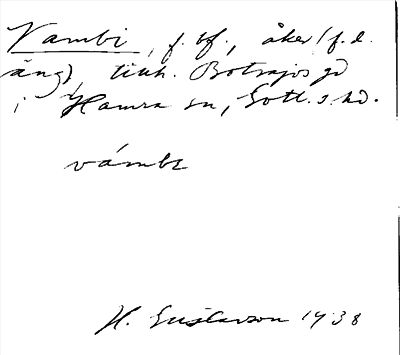 Vambi, f. bf., åker (f.d.
äng), tillh. Botvajos gd
i Hamra sn, Gotl. s. hd.
vámbɩ
H. Gustavson 1938